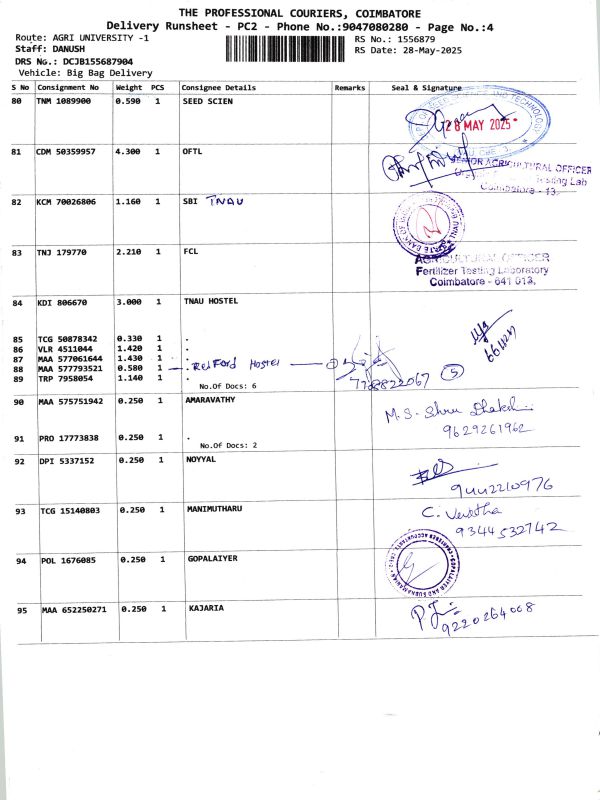 THE PROFESSIONAL COURIERS, COIMBATORE
Delivery Runsheet - PC2 - Phone No.:9047080280 - Page No.:4
Route: AGRI UNIVERSITY -1
RS No.: 1556879
Staff: DANUSH
RS Date: 28-May-2025
DRS No.: DCJB155687904
Vehicle: Big Bag Delivery
S No Consignment No Weight PCS Consignee Details Remarks Seal & Signature
80 TNM 1089900 0.590 1 SEED SCIEN
28 MAY 2025
81 CDM 50359957 4.300 1 OFTL
SENIOR AGRICULTURAL OFFICER
Testing Lab
Coimbatore - 13.
82 KCM 70026806 1.160 1 SBI TNAU
83 TNJ 179770 2.210 1 FCL
AGRICULTURAL OFFICER
Fertilizer Testing Laboratory
Coimbatore - 641 013.
84 KDI 806670 3.000 1 TNAU HOSTEL
85 TCG 50878342 0.330 1 .
86 VLR 4511044 1.420 1 .
87 MAA 577061644 1.430 1 .
88 MAA 577793521 0.580 1 Hostel
89 TRP 7958054 1.140 1 .
778822067 5
No.Of Docs: 6
90 MAA 575751942 0.250 1 AMARAVATHY
M.S. Shru
9629261962
91 PRO 17773838 0.250 1 .
No.Of Docs: 2
92 DPI 5337152 0.250 1 NOYYAL
9442210976
93 TCG 15140803 0.250 1 MANIMUTHARU
C.
9344532742
94 POL 1676085 0.250 1 GOPALAIYER
GOPALAIYER AND SUBRAMANIAN
CHARTERED ACCOUNTANTS
95 MAA 652250271 0.250 1 KAJARIA
9220264008